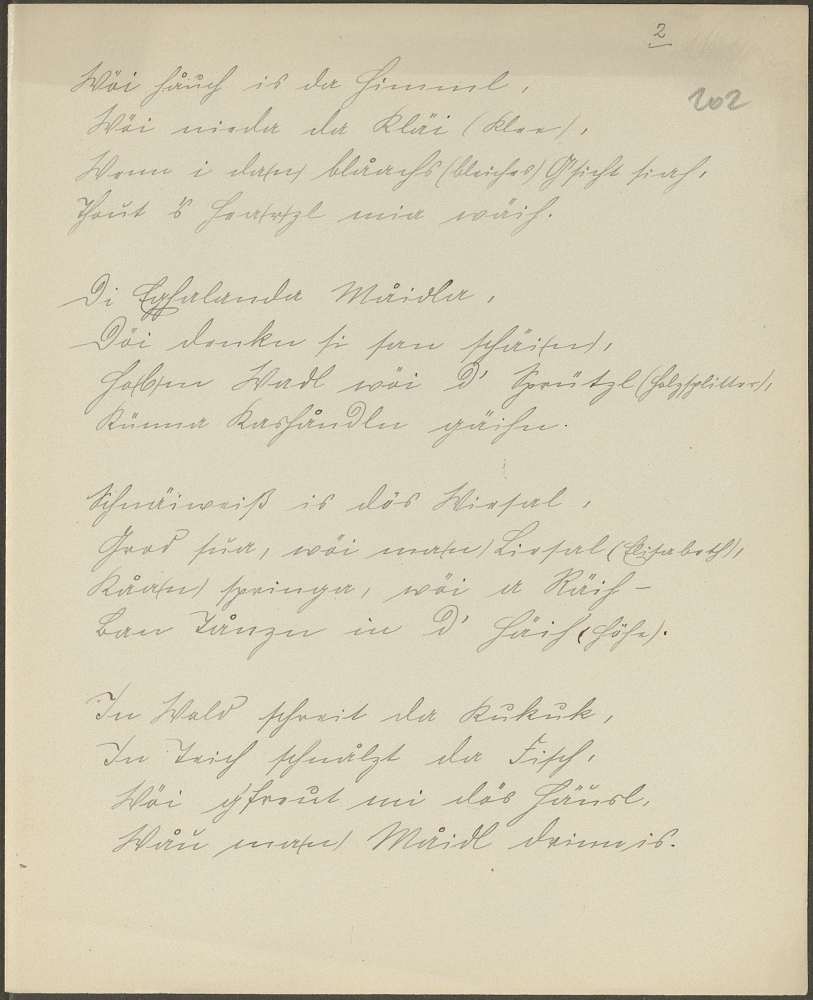 2
202
Wöi håuch is da Himml,
Wöi nieda da Kläi (Klee),
Wenn i da(n) blåachs (bleiches) Gsicht siah,
Thout 's Hea(r)zl mia wäih.
Di Eghalanda Måidla,
Döi denkn si san schäi(n),
Ho(b)m Wadl wöi d' Sprützl (Holzsplitter),
Künna Kashåndln gäihn.
Schnäiweiß is dös Wiesal,
Grod sua, wöi ma(n) Liesal (Elisabeth),
Kåa(n) springa, wöi a Räih –
Ban Tånzn in d' Häih (Höhe).
In Wald schreit da Kukuk,
In Teich schnålzt da Fisch,
Wöi g'freut mi dös Häusl,
Wåu ma(n) Måidl drinn is.